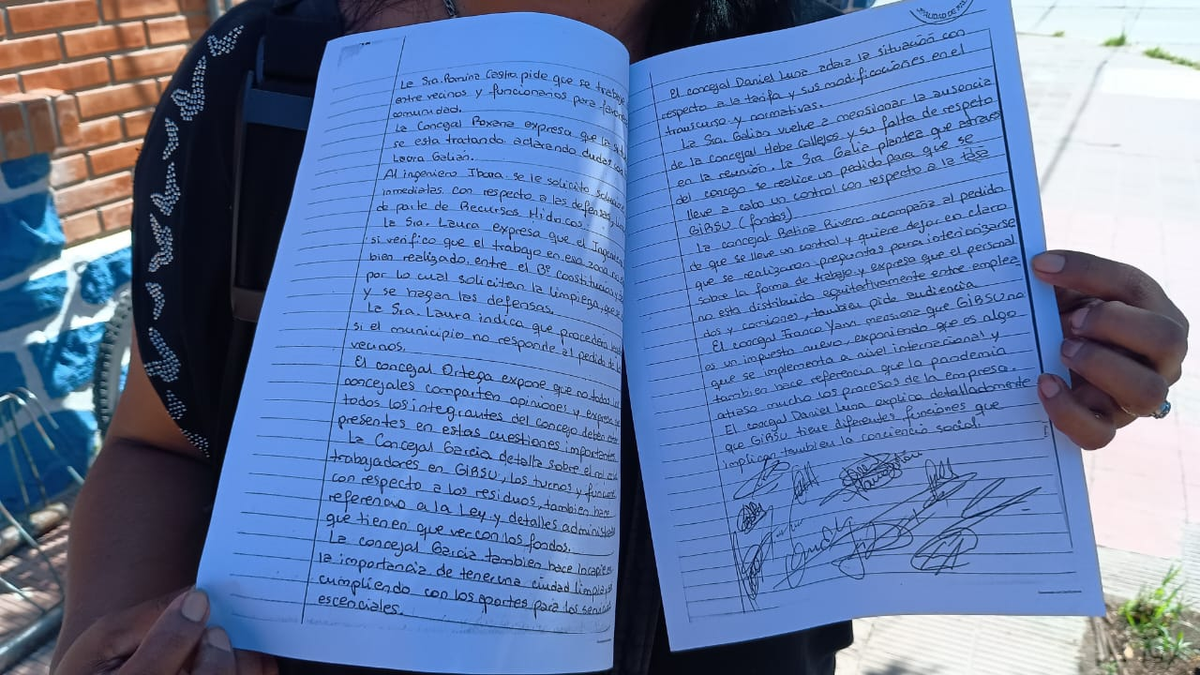 La Sra. Romina Castro pide que se trabaje
entre vecinos y funcionarios para
comunidad.
La Concejal Roxana expresa que la
se esta tratando aclarando dudas
Laura Galián.
Al ingeniero Ibarra se le solicito
inmediatas con respecto a las defensas,
de parte de Recursos Hidricos.
La Sra. Laura expresa que el
si verifico que el trabajo en esa zona
bien realizado, entre el Bº Constitución
por lo cual solicitan la limpieza,
y se hagan las defensas.
La Sra. Laura indica que procederan
si el municipio no responde al pedido de
vecinos.
El concejal Ortega expone que no todos los
concejales comparten opiniones y expresa
todos los integrantes del concejo deben
presentes en estas cuestiones importantes.
La Concejal Garcia detalla sobre el
trabajadores en GIRSU, los turnos y
con respecto a los residuos, tambien hace
referencia a la Ley y detalles
que tienen que ver con los fondos.
La concejal Garcia tambien hace incapie
la importancia de tener una ciudad limpia
cumpliendo con los aportes para los
escenciales.
El concejal Daniel Luna aclara la situación con
respecto a la tarifa y sus modificaciones en el
transcurso y normativas.
La Sra. Galian vuelve a mensionar la ausencia
de la concejal Hebe Callejos y su falta de respeto
en la reunión. La Sra Galia plantea que atraves
del concejo se realice un pedido para que se
lleve a cabo un control con respecto a la tasa
GIRSU (fondos)
La concejal Betina Rivero acompaña al pedido
de que se lleve un control y quiere dejar en claro
que se realizaron preguntas para interiorizarse
sobre la forma de trabajo y expresa que el personal
no esta distribuido equitativamente entre emplea
dos y camiones, tambien pide audiencia
El concejal Franco Yani menciona que GIRSU no
es un impuesto nuevo, exponiendo que es algo
que se implementa a nivel internacional y
tambien hace referencia que la pandemia
atraso mucho los procesos de la empresa.
El concejal Daniel Luna explica detalladamente
que GIRSU tiene diferentes funciones que
implican tambien la conciencia social.